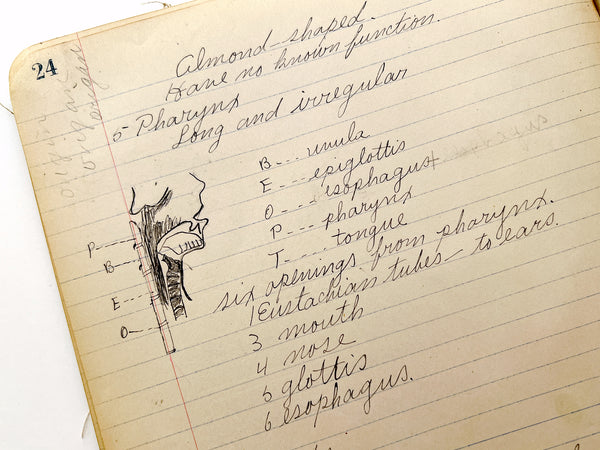 24
Almond-shaped.
Have no known function.
5 Pharynx
Long and irregular
B --- uvula
E --- epiglottis
O --- esophagus
P --- pharynx
T --- tongue
P
B
E
O
six openings from pharynx.
1 Eustachian tubes - to ears.
3 mouth
4 nose
5 glottis
6 esophagus.
origin
origin